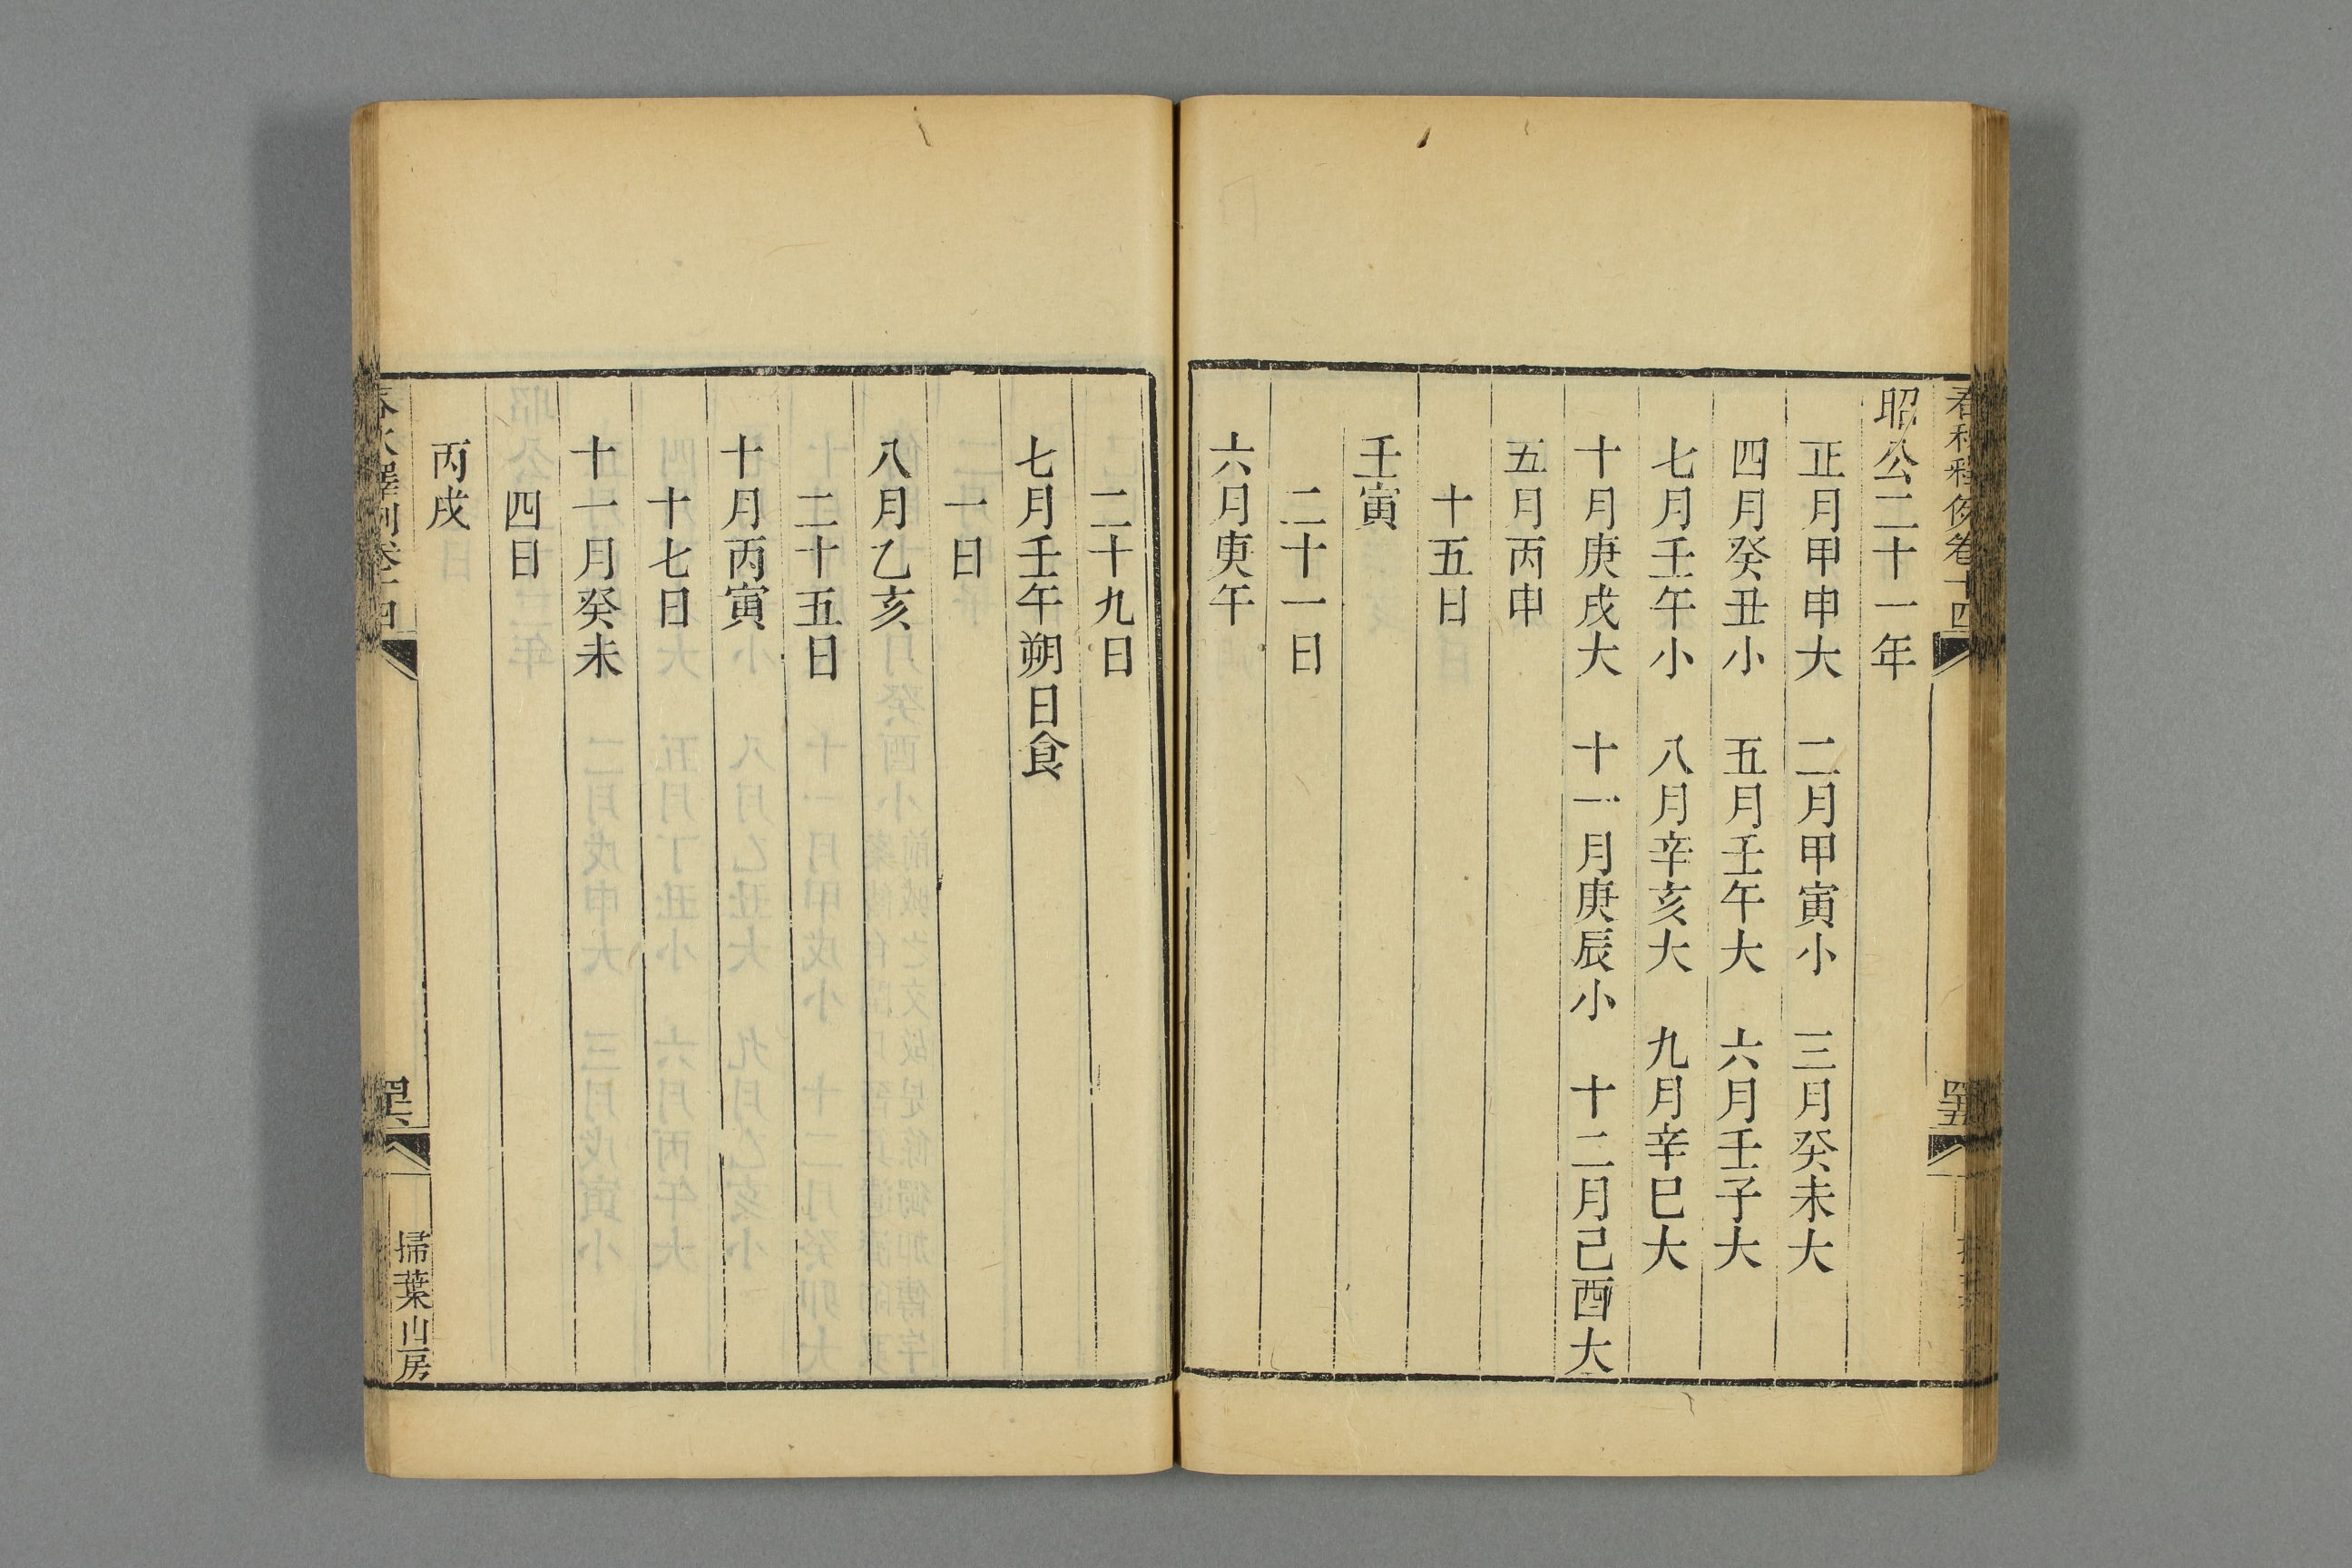 昭公二十一年
正月甲申大 二月甲寅小 三月癸未大
四月癸丑小 五月壬午大 六月壬子大
七月壬午小 八月辛亥大 九月辛巳大
十月庚戌大 十一月庚辰小 十二月己酉大
五月丙申
十五日
壬寅
二十一日
六月庚午
二十九日
七月壬午朔日食
一日
八月乙亥
二十五日
十月丙寅
十七日
十一月癸未
四日
丙戌
掃葉山房